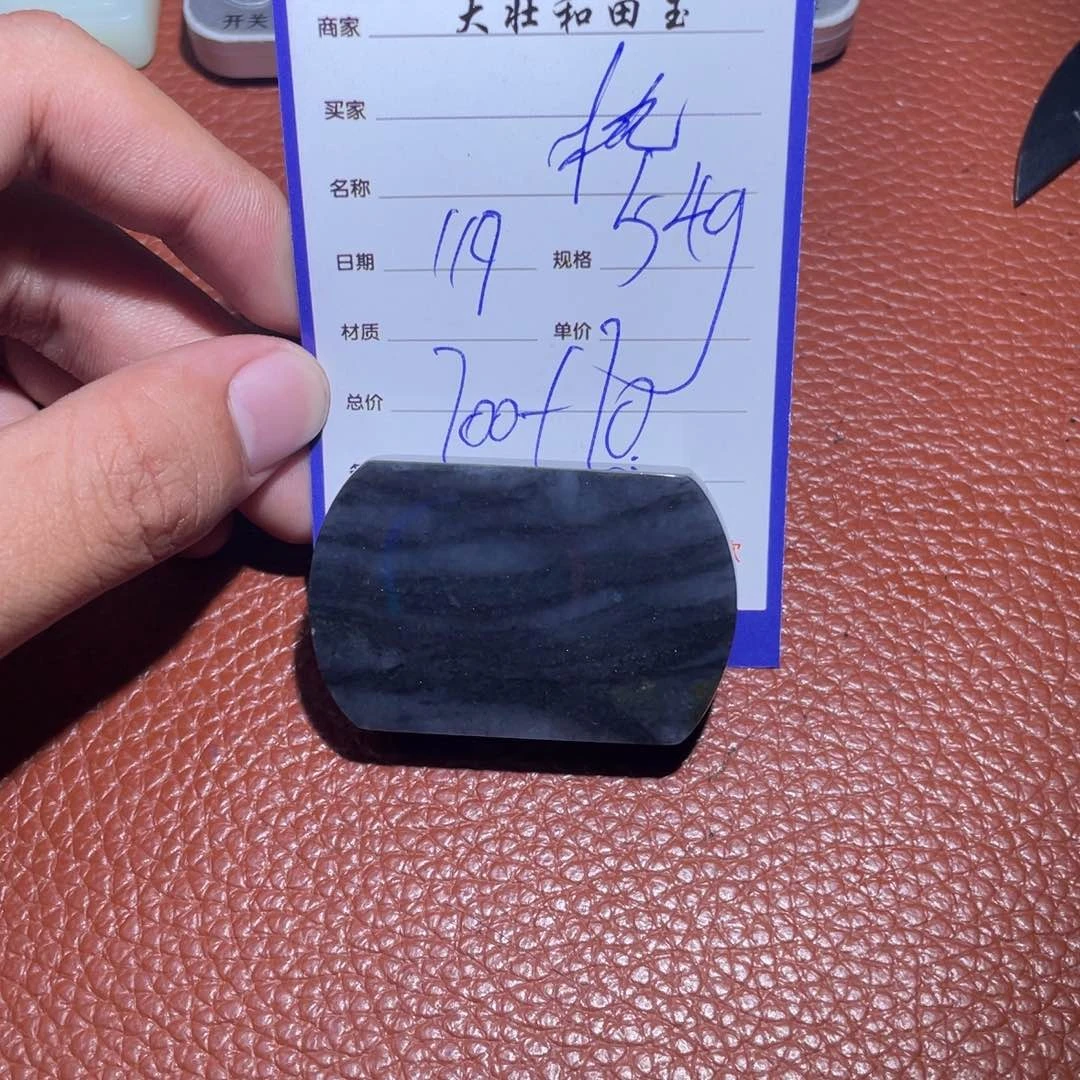 开关
商家 大壮和田玉
买家
名称
日期 119 规格 54g
材质 单价
总价 700+70